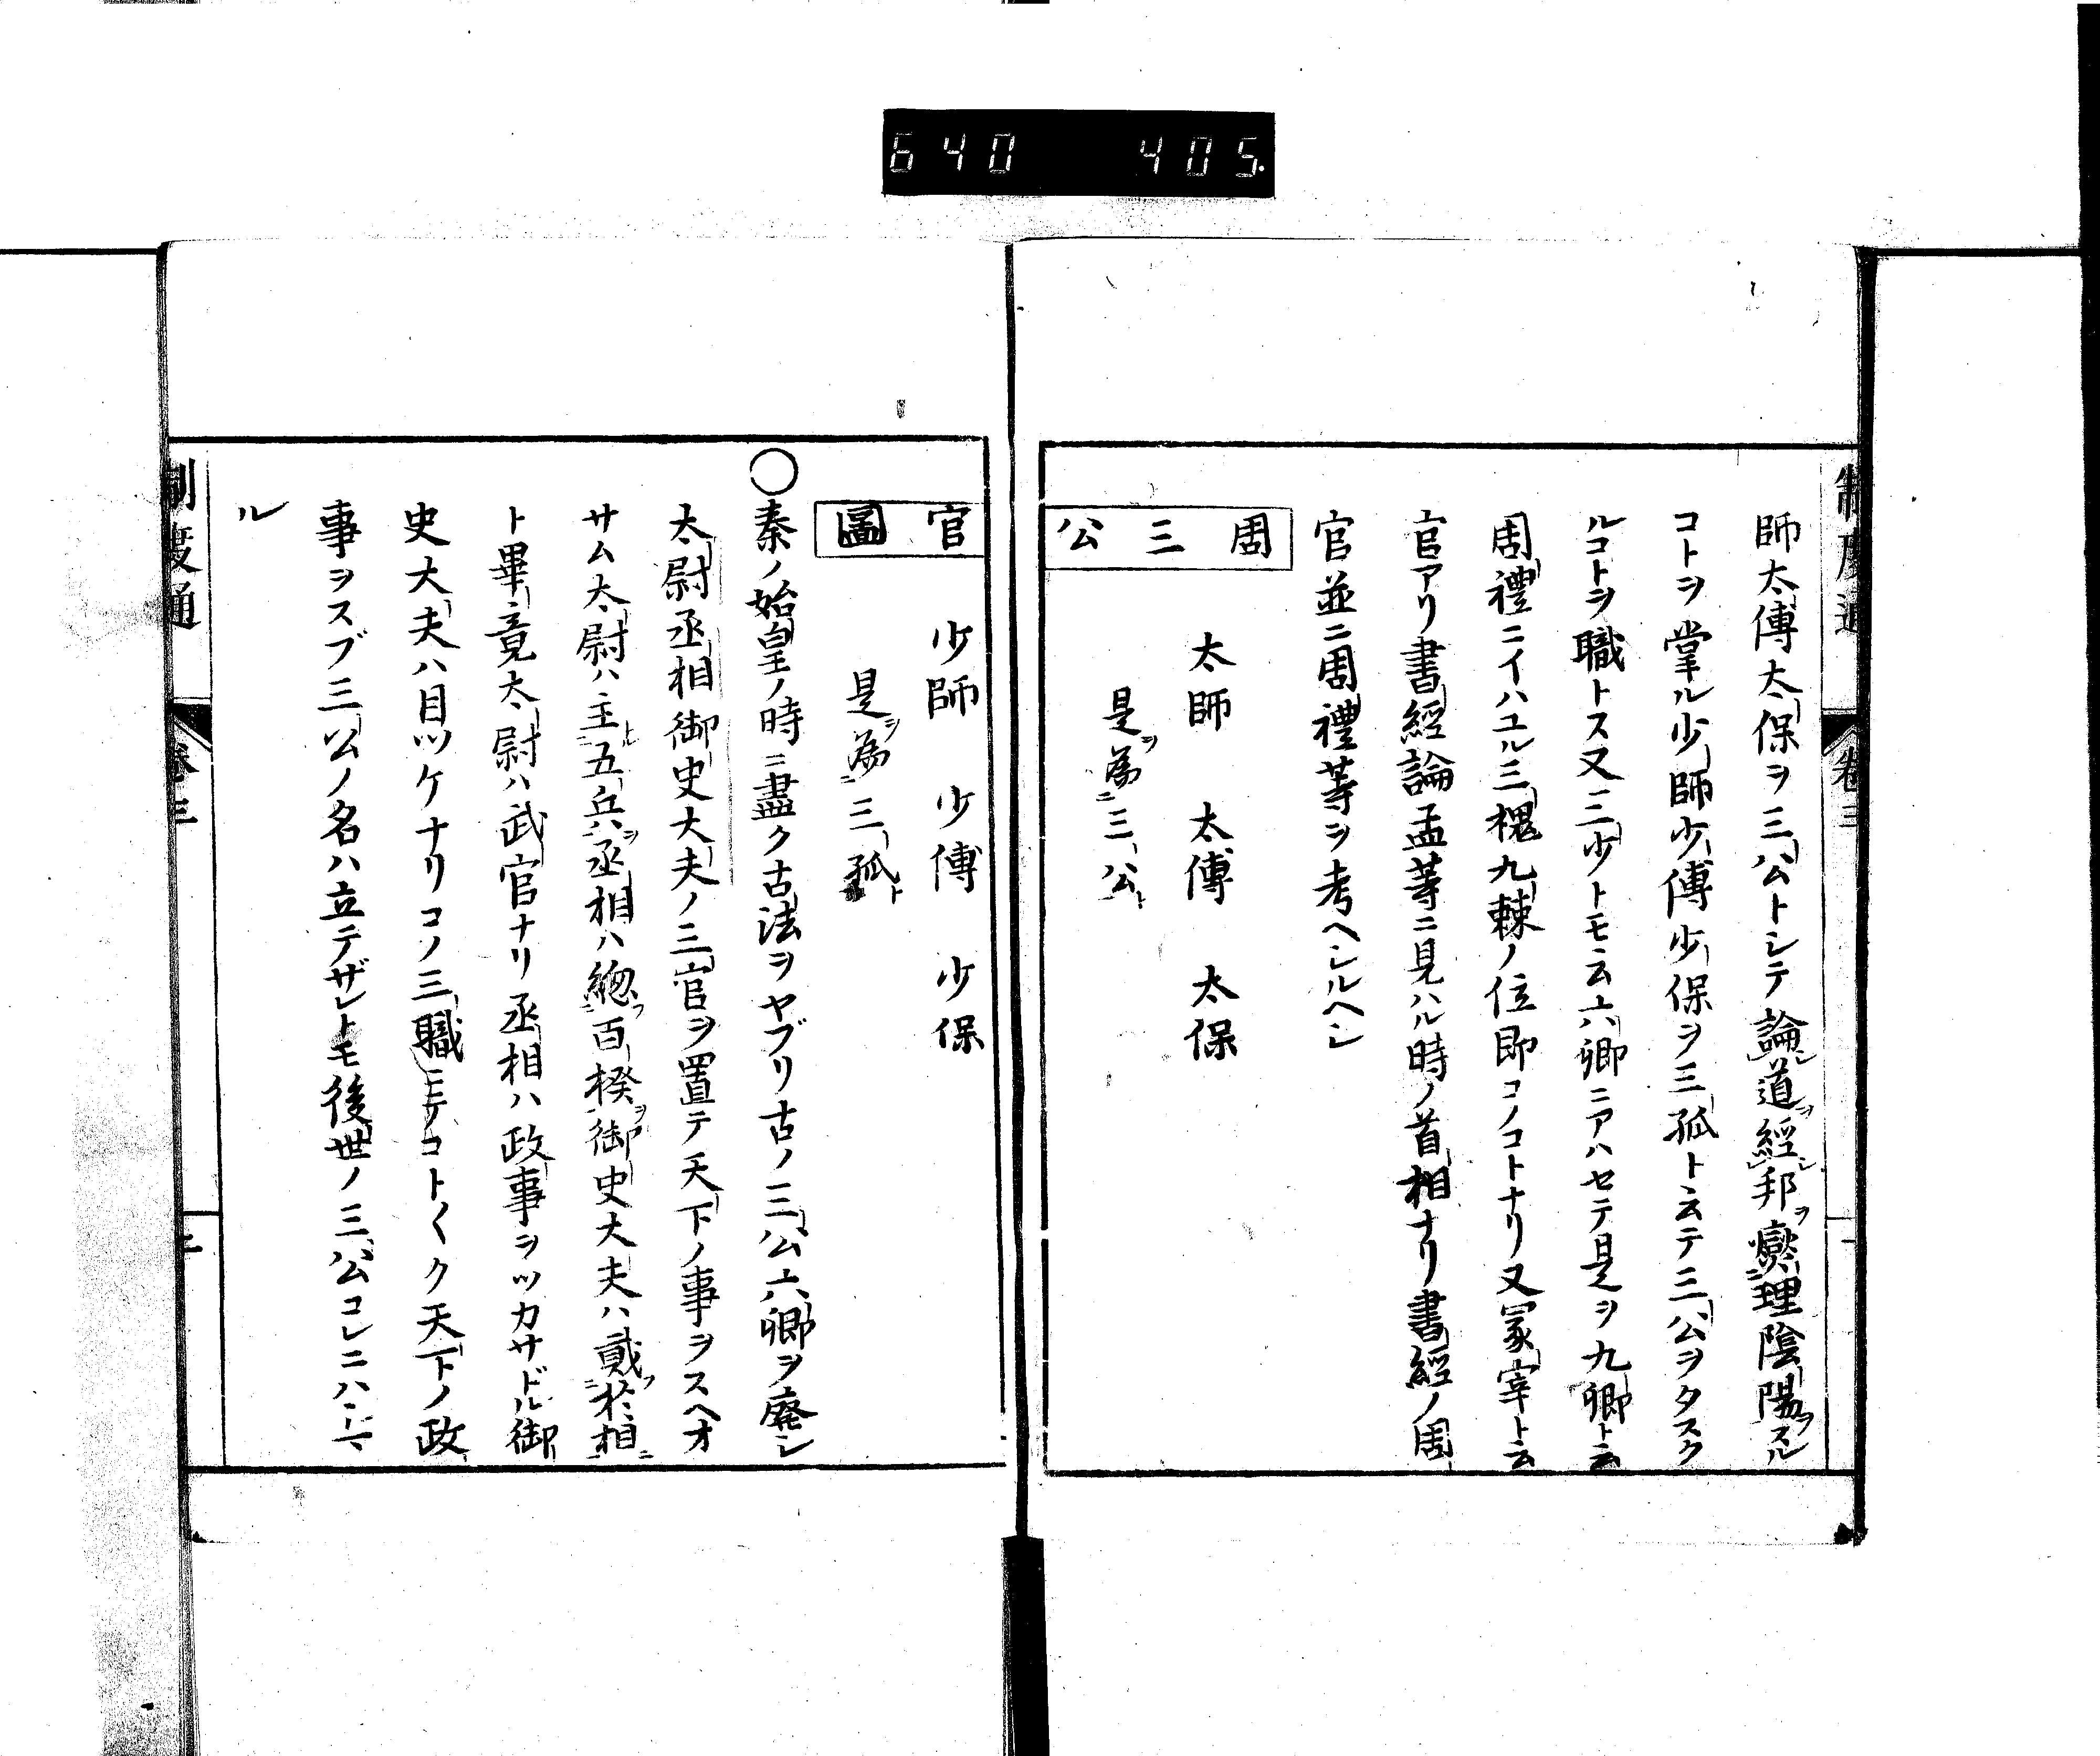 640 405.
制度通 卷三
師太傅太保ヲ三公トシテ論道經邦燮理陰陽スル
コトヲ掌ル少師少傅少保ヲ三孤ト云テ三公ヲタスク
ルコトヲ職トス又三少トモ云六卿ニアハセテ是ヲ九卿ト云
周禮ニイハユル三槐九棘ノ位即コノコトナリ又冢宰ト云
官アリ書經論孟等ニ見ハル時ノ首相ナリ書經ノ周
官並ニ周禮等ヲ考ヘシルヘシ
周三公
太師 太傅 太保
是ヲ為ニ三公ト
官圖
少師 少傅 少保
是ヲ為ニ三孤ト
○秦ノ始皇ノ時ニ盡ク古法ヲヤブリ古ノ三公六卿ヲ廢シ
太尉丞相御史大夫ノ三官ヲ置テ天下ノ事ヲスヘオ
サム太尉ハ主五兵丞相ハ總百揆御史大夫ハ貳於相
ト畢竟太尉ハ武官ナリ丞相ハ政事ヲツカサドル御
史大夫ハ目ツケナリコノ三職ニテコト〱ク天下ノ政
事ヲスブ三公ノ名ハ立テザレトモ後世ノ三公コレニハシマ
ル
制度通 卷三 二